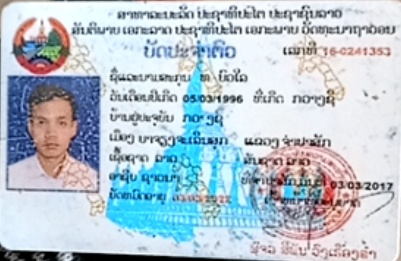 ສາທາລະນະລັດ ປະຊາທິປະໄຕ ປະຊາຊົນລາວ
ສັນຕິພາບ ເອກະລາດ ປະຊາທິປະໄຕ ເອກະພາບ ວັດທະນາຖາວອນ
ບັດປະຈຳຕົວ
ເລກທີ 16-0241353
ຊື່ ແລະ ນາມສະກຸນ ທ. ບົວໄລ
ວັນເດືອນປີເກີດ 05/03/1996 ທີ່ເກີດ ກວາງຊີ
ບ້ານຢູ່ປະຈຸບັນ ກວາງຊີ
ເມືອງ ບາຈຽງຈະເລີນສຸກ ແຂວງ ຈຳປາສັກ
ເຊື້ອຊາດ ລາວ ສັນຊາດ ລາວ
ອາຊີບ ຊາວນາ ທີ່ຈຳປາສັກ, ວັນທີ 03/03/2017
ບັດໝົດອາຍຸ